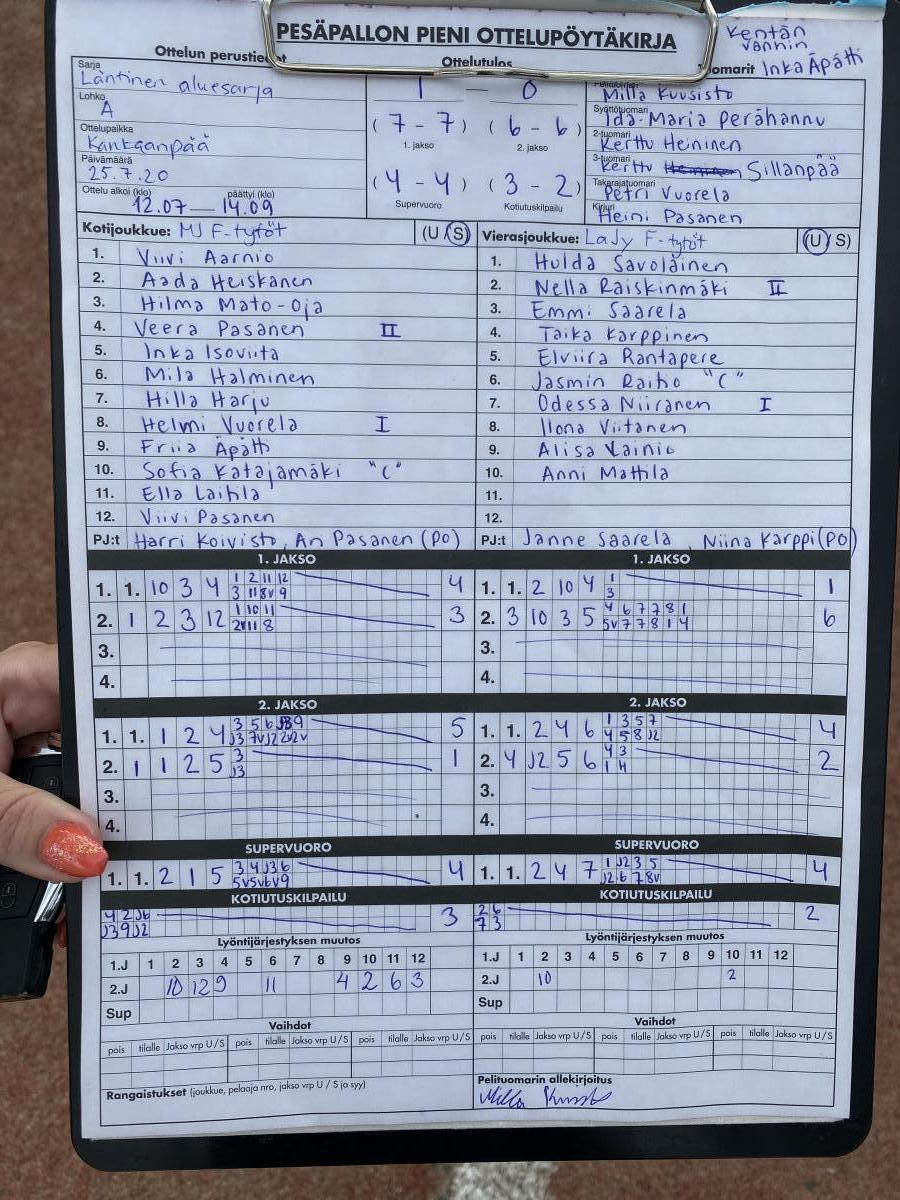 PESÄPALLON PIENI OTTELUPÖYTÄKIRJA
Kentän
vanhin
Inka Äpätti
Ottelun perustiedot
Ottelutulos
Tuomarit
Sarja
Läntinen aluesarja
Lohko
A
Ottelupaikka
Kankaanpää
Päivämäärä
25.7.20
Ottelu alkoi (klo) päättyi (klo)
12.07 — 14.09
1 — 0
(7 - 7) (6 - 6)
1. jakso 2. jakso
(4 - 4) (3 - 2)
Supervuoro Kotiutuskilpailu
Milla Kuusisto
Syöttötuomari
Ida-Maria Perähannu
2-tuomari
Kerttu Heininen
3-tuomari
Kerttu Sillanpää
Takarajatuomari
Petri Vuorela
Kirjuri
Heini Pasanen
Kotijoukkue: MJ F-tytöt (U/S)
1. Viivi Aarnio
2. Aada Heiskanen
3. Hilma Mato-Oja
4. Veera Pasanen II
5. Inka Isoviita
6. Mila Halminen
7. Hilla Harju
8. Helmi Vuorela I
9. Friia Äpätti
10. Sofia Katajamäki "C"
11. Ella Laihla
12. Viivi Pasanen
PJ:t Harri Koivisto, An Pasanen (PO)
Vierasjoukkue: LaJy F-tytöt (U/S)
1. Hulda Savolainen
2. Nella Raiskinmäki II
3. Emmi Saarela
4. Taika Karppinen
5. Elviira Rantapere
6. Jasmin Raiho "C"
7. Odessa Niiranen I
8. Ilona Viitanen
9. Alisa Vainio
10. Anni Mattila
11.
12.
PJ:t Janne Saarela, Niina Karppi (PO)
1. JAKSO
1. 1. 10 3 4 1 2 11 12 4
3 11 8v 9
2. 1 2 3 12 1 10 11 3
2v 11 8
3.
4.
1. JAKSO
1. 1. 2 10 4 1 1
3
2. 3 10 3 5 4 6 7 7 8 1 6
5v 7 7 8 1 4
3.
4.
2. JAKSO
1. 1. 1 2 4 3 5 6 9 5
J3 7v J2 2v 2v
2. 1 1 2 5 3 1
J3
3.
4.
2. JAKSO
1. 1. 2 4 6 1 3 5 7 4
4 5 8 J2
2. 4 J2 5 6 4 3 2
1 4
3.
4.
SUPERVUORO
1. 1. 2 1 5 3 4 J3 6 4
5v 5v 6v 9
SUPERVUORO
1. 1. 2 4 7 1 J2 3 5 4
J2 6 7 8v
KOTIUTUSKILPAILU
4 2 J6 3
J3 9 J2
KOTIUTUSKILPAILU
2 6 2
7 3
Lyöntijärjestyksen muutos
1.J 1 2 3 4 5 6 7 8 9 10 11 12
2.J 10 12 9 11 4 2 6 3
Sup
Lyöntijärjestyksen muutos
1.J 1 2 3 4 5 6 7 8 9 10 11 12
2.J 10 2
Sup
Vaihdot
pois tilalle Jakso vrp U/S pois tilalle Jakso vrp U/S pois tilalle Jakso vrp U/S
Vaihdot
pois tilalle Jakso vrp U/S pois tilalle Jakso vrp U/S pois tilalle Jakso vrp U/S
Rangaistukset (joukkue, pelaaja nro, jakso vrp U/S ja syy)
Pelituomarin allekirjoitus